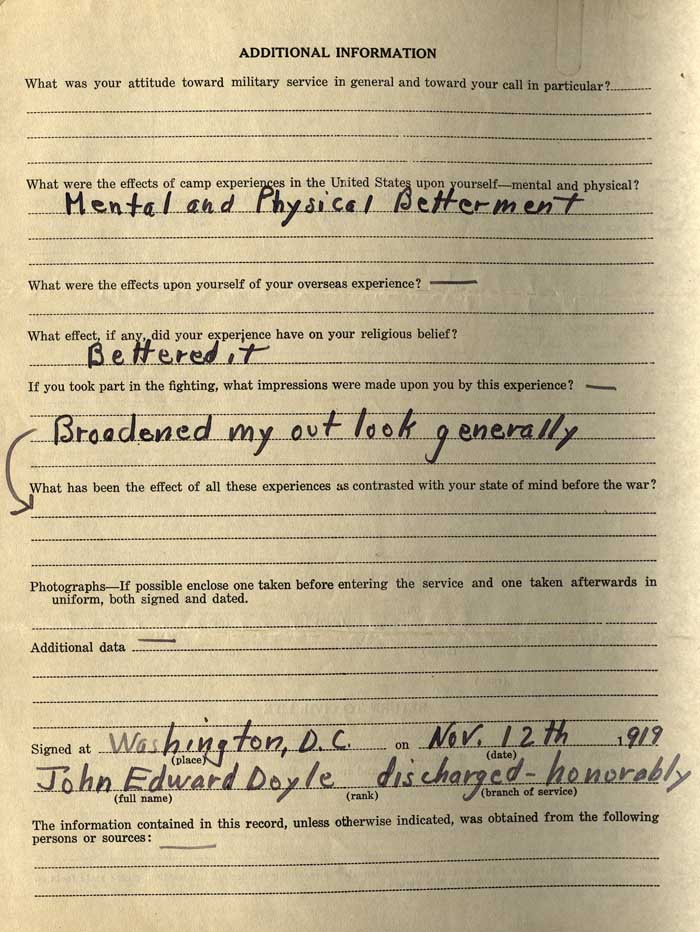 ADDITIONAL INFORMATION
What was your attitude toward military service in general and toward your call in particular?
What were the effects of camp experiences in the United States upon yourself—mental and physical?
Mental and Physical Betterment
What were the effects upon yourself of your overseas experience? —
What effect, if any, did your experience have on your religious belief?
Bettered it
If you took part in the fighting, what impressions were made upon you by this experience? —
Broadened my out look generally
What has been the effect of all these experiences as contrasted with your state of mind before the war?
Photographs—If possible enclose one taken before entering the service and one taken afterwards in
uniform, both signed and dated.
Additional data —
Signed at Washington, D.C. on Nov. 12th 1919
(place) (date)
John Edward Doyle discharged - honorably
(full name) (rank) (branch of service)
The information contained in this record, unless otherwise indicated, was obtained from the following
persons or sources: —